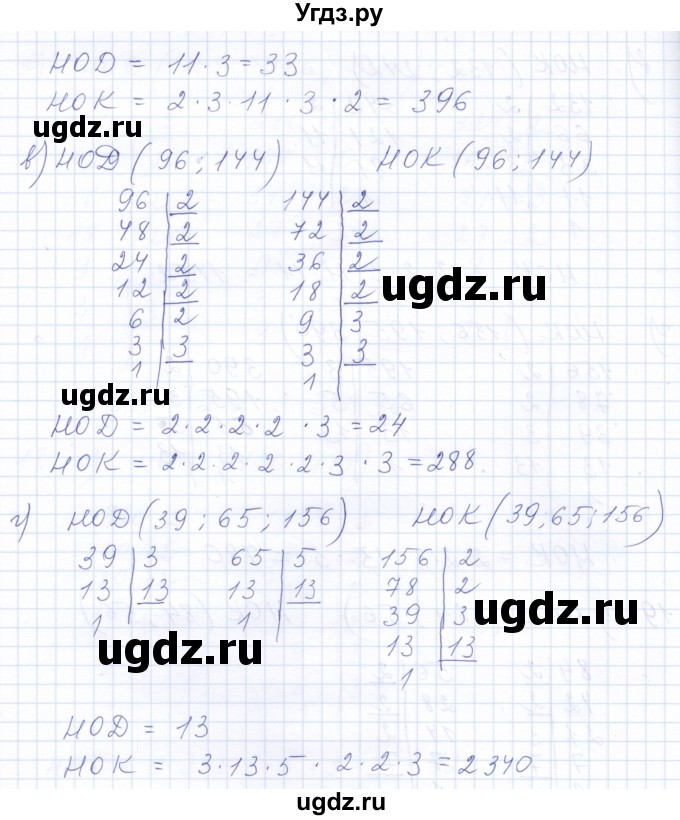 Угдз.ру
НОД = 11·3=33
НОК = 2·3·11·3·2= 396
ugdz.ru
в) НОД (96; 144) НОК (96; 144)
96 | 2 144 | 2
48 | 2 72 | 2
24 | 2 36 | 2
12 | 2 18 | 2
ugdz.ru
6 | 2 9 | 3
3 | 3 3 | 3
1 1
ugdz.ru
НОД = 2·2·2·2 ·3 =24
НОК = 2·2·2·2·2·3 ·3 =288.
г) НОД (39; 65; 156) НОК (39, 65; 156)
39 | 3 65 | 5 156 | 2
13 | 13 13 | 13 78 | 2
1 1 39 | 3
ugdz.ru
13 | 13
ugdz.ru
1
НОД = 13
НОК = 3·13·5 · 2·2·3 =2340
ugdz.ru